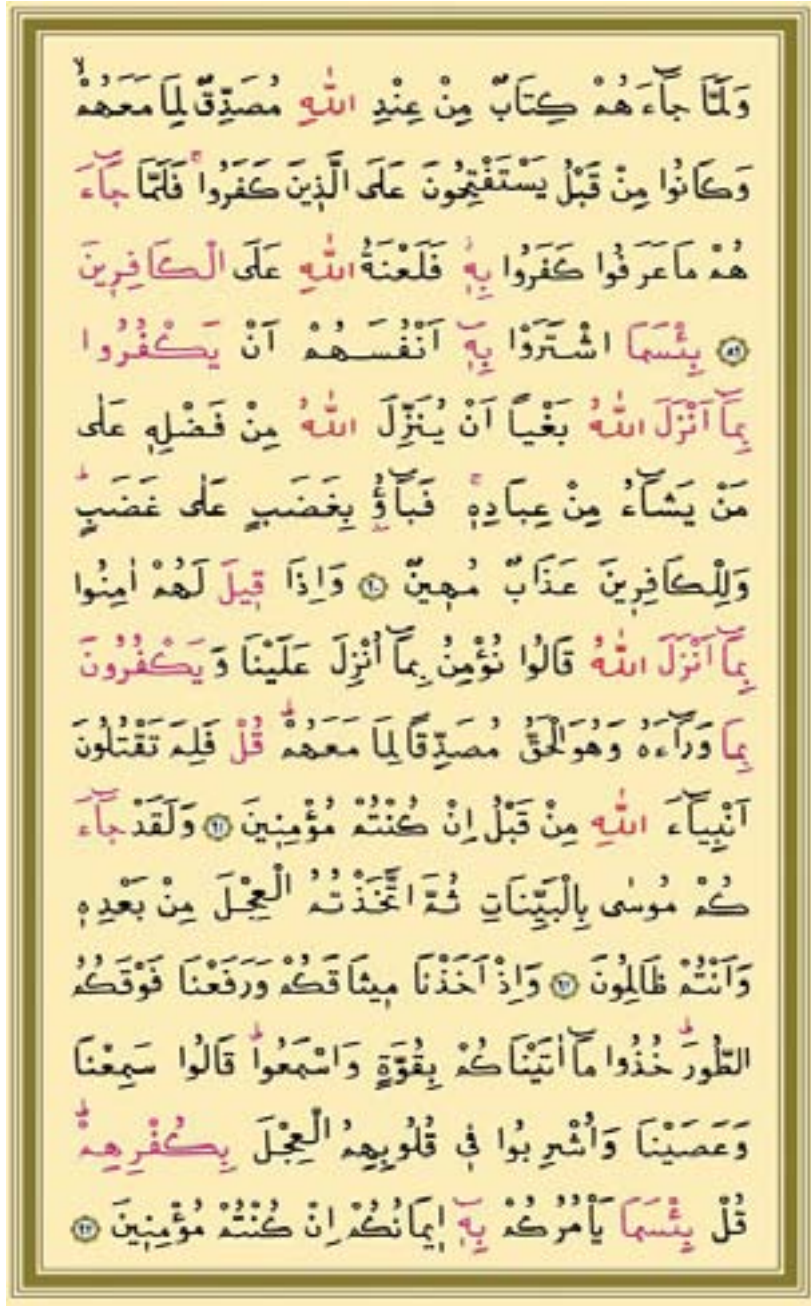 وَلَمَّا جَٓاءَهُمْ كِتَابٌ مِنْ عِنْدِ اللّٰهِ مُصَدِّقٌ لِمَا مَعَهُمْۙ
وَكَانُوا مِنْ قَبْلُ يَسْتَفْتِحُونَ عَلَى الَّذ۪ينَ كَفَرُواۚ فَلَمَّا جَٓاءَ
هُمْ مَا عَرَفُوا كَفَرُوا بِه۪ۘ فَلَعْنَةُ اللّٰهِ عَلَى الْكَافِر۪ينَ
﴿٨٩﴾ بِئْسَمَا اشْتَرَوْا بِه۪ٓ اَنْفُسَهُمْ اَنْ يَكْفُرُوا
بِمَٓا اَنْزَلَ اللّٰهُ بَغْياً اَنْ يُنَزِّلَ اللّٰهُ مِنْ فَضْلِه۪ عَلٰى
مَنْ يَشَٓاءُ مِنْ عِبَادِه۪ۚ فَبَٓاؤُ۫ بِغَضَبٍ عَلٰى غَضَبٍۜ
وَلِلْكَافِر۪ينَ عَذَابٌ مُه۪ينٌ ﴿٩٠﴾ وَاِذَا ق۪يلَ لَهُمْ اٰمِنُوا
بِمَٓا اَنْزَلَ اللّٰهُ قَالُوا نُؤْمِنُ بِمَٓا اُنْزِلَ عَلَيْنَا وَيَكْفُرُونَ
بِمَا وَرَٓاءَهُ وَهُوَ الْحَقُّ مُصَدِّقًا لِمَا مَعَهُمْۜ قُلْ فَلِمَ تَقْتُلُونَ
اَنْبِيَٓاءَ اللّٰهِ مِنْ قَبْلُ اِنْ كُنْتُمْ مُؤْمِن۪ينَ ﴿٩١﴾ وَلَقَدْ جَٓاءَ
كُمْ مُوسٰى بِالْبَيِّنَاتِ ثُمَّ اتَّخَذْتُمُ الْعِجْلَ مِنْ بَعْدِه۪
وَاَنْتُمْ ظَالِمُونَ ﴿٩٢﴾ وَاِذْ اَخَذْنَا م۪يثَاقَكُمْ وَرَفَعْنَا فَوْقَكُمُ
الطُّورَۜ خُذُوا مَٓا اٰتَيْنَاكُمْ بِقُوَّةٍ وَاسْمَعُواۜ قَالُوا سَمِعْنَا
وَعَصَيْنَا وَاُشْرِبُوا ف۪ي قُلُوبِهِمُ الْعِجْلَ بِكُفْرِهِمْۜ
قُلْ بِئْسَمَا يَأْمُرُكُمْ بِه۪ٓ ا۪يمَانُكُمْ اِنْ كُنْتُمْ مُؤْمِن۪ينَ ﴿٩٣﴾